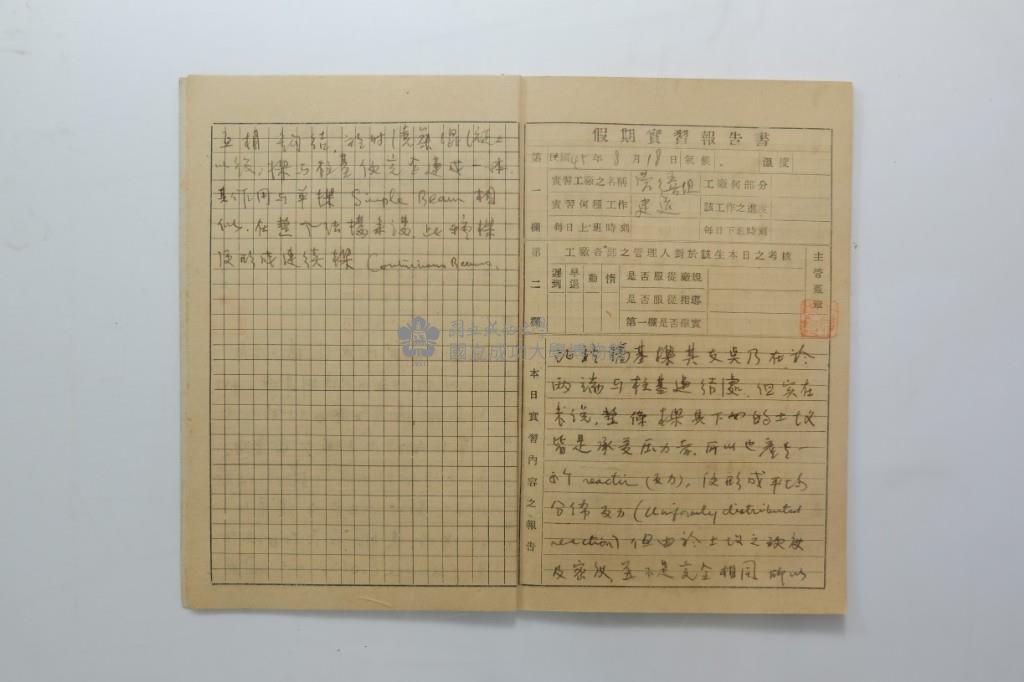 互相 結,於时澆築混凝土
以後,樑与柱基便完全連成一体,
其作用与单樑 Simple Beam 相
似,在整个
便形成連續樑 Continuous Beams.
國立成功大學
國立成功大學博物館
假期實習報告書
第一欄
民國45年8月18日氣候. 溫度
實習工廠之名稱 工廠何部分
實習何種工作 建造 該工作之進度
每日上班時刻 每日下班時刻
第二欄
工廠各部之管理人對於該生本日之考核
主管蓋章
遲到 早退 勤 惰
是否服從廠規
是否服從指導
第一欄是否確實
本日實習內容之報告
樑其支點乃在於
兩端与柱基連結處.但实在
来説,整條樑其下面的土壤
皆是承受压力者,所以也產生一
个 reaction (反力),便形成平均
分佈反力 (Uniformly distributed
reaction) 但由於土壤之
及密度並不是完全相同 所以